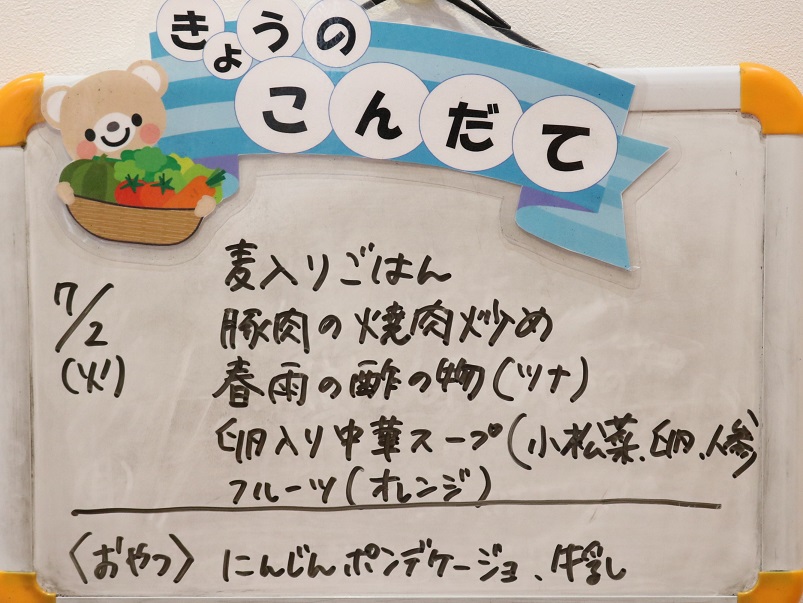 きょうの
こんだて
7/2
(火)
麦入りごはん
豚肉の焼肉炒め
春雨の酢の物(ツナ)
卵入り中華スープ(小松菜、卵、人参)
フルーツ(オレンジ)
〈おやつ〉 にんじんポンデケージョ、牛乳し